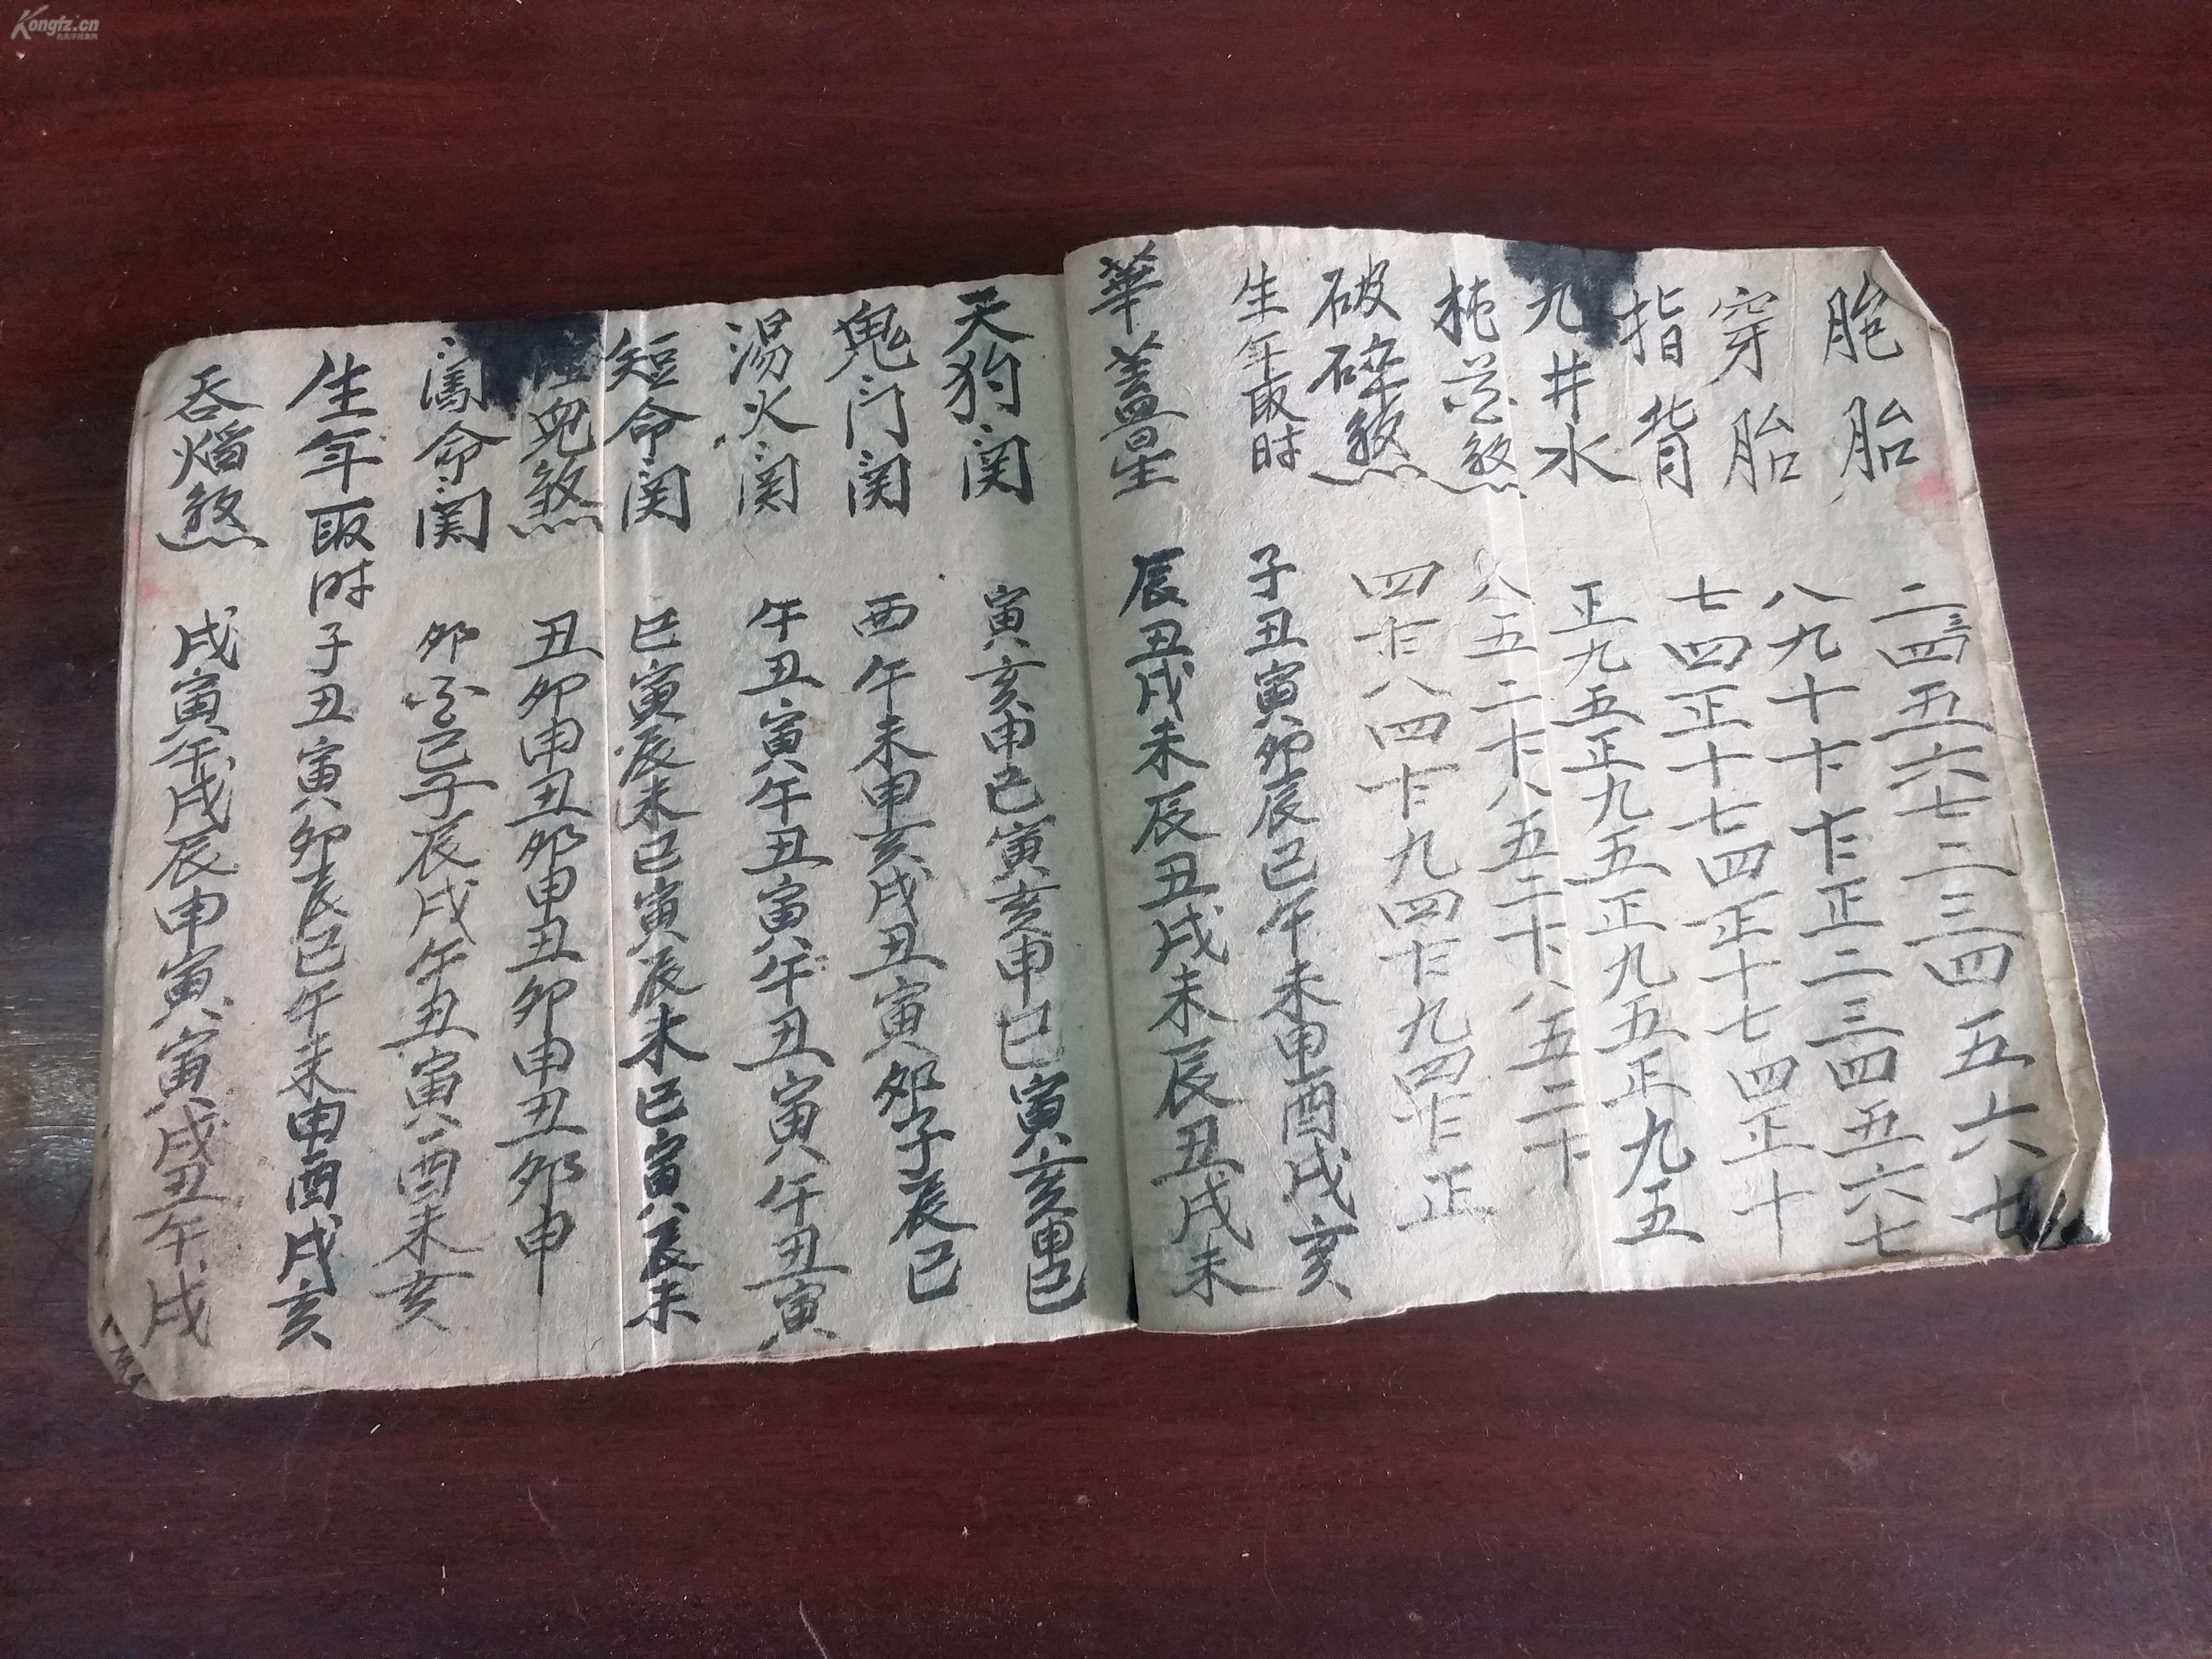 Kongfz.cn
胞胎 二三四五六七二三四五六七
穿胎 八九十十正二三四五六七
指背 七四正十七四正十七四正十
九井水 正九五正九五正九五正九五
煞 八五二十八五二十八五二十
破碎煞 四八四九四九四正
生年取时 子丑寅卯辰巳午未申酉戌亥
華盖星 辰丑戌未辰丑戌未辰丑戌未
天狗関 寅亥申巳寅亥申巳寅亥申巳
鬼门関 酉午未申亥戌丑寅卯子辰巳
湯火関 午丑寅午丑寅午丑寅午丑寅
短命関 巳寅辰未巳寅辰未巳寅辰未
煞 丑卯申丑卯申丑卯申丑卯申
命関 卯巳子辰戌午丑寅酉未亥
生年取时 子丑寅卯辰巳午未申酉戌亥
吞焰煞 戌寅午戌辰申寅寅戌丑午戌